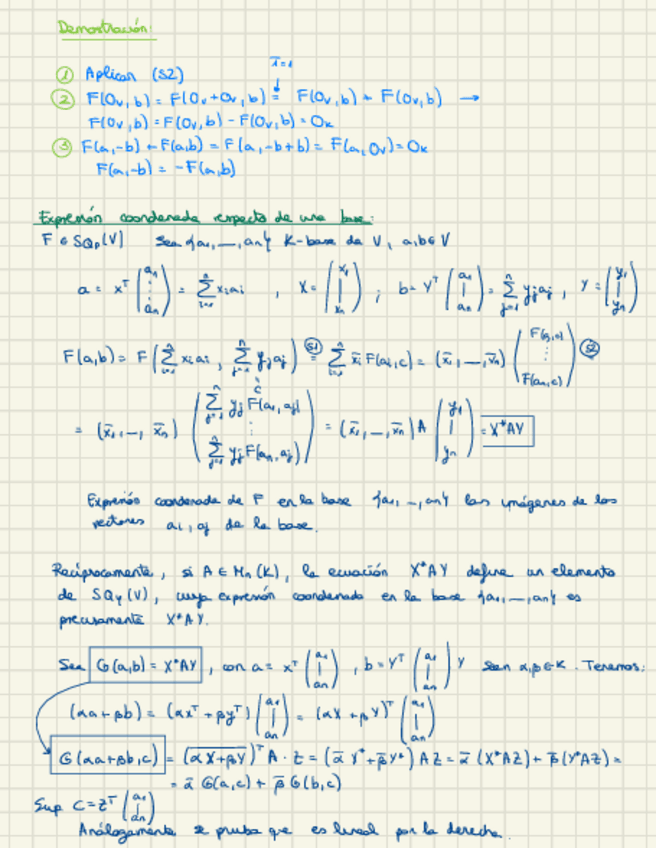 Demostración:
① Aplicar (S2)
1̄=1
② F(0v, b) = F(0v+0v, b) = F(0v, b) + F(0v, b) →
F(0v, b) = F(0v, b) - F(0v, b) = 0k
③ F(a, -b) + F(a, b) = F(a, -b+b) = F(a, 0v) = 0k
F(a, -b) = -F(a, b)
Expresión coordenada respecto de una base:
F ∈ SQφ(V) Sea {a₁, —, aₙ} K-base de V, a, b ∈ V
a = xᵀ (a₁ ⋮ aₙ) = Σⁿᵢ₌₁ xᵢaᵢ , X = (x₁ | xₙ) ; b = Yᵀ (a₁ | aₙ) = Σⁿⱼ₌₁ yⱼaⱼ , Y = (y₁ | yₙ)
F(a, b) = F(Σⁿᵢ₌₁ xᵢaᵢ , Σⁿⱼ₌₁ yⱼaⱼ) =(S1) Σⁿᵢ₌₁ x̄ᵢ F(aᵢ, c) = (x̄₁, —, x̄ₙ) (F(a₁, c) ⋮ F(aₙ, c)) =(S2)
c
= (x̄₁, —, x̄ₙ) (Σⁿⱼ₌₁ yⱼ F(a₁, aⱼ) ⋮ Σⁿⱼ₌₁ yⱼ F(aₙ, aⱼ)) = (x̄₁, —, x̄ₙ) A (y₁ | yₙ) = X*AY
Expresión coordenada de F en la base {a₁, —, aₙ} las imágenes de los
vectores aᵢ, aⱼ de la base.
Recíprocamente, si A ∈ Mₙ(K), la ecuación X*AY define un elemento
de SQφ(V), cuya expresión coordenada en la base {a₁, —, aₙ} es
precisamente X*AY.
Sea G(a, b) = X*AY , con a = xᵀ (a₁ | aₙ) , b = Yᵀ (a₁ | aₙ) y sean α, β ∈ K. Tenemos:
(αa + βb) = (αxᵀ + βyᵀ) (a₁ | aₙ) = (αX + βY)ᵀ (a₁ | aₙ)
G(αa + βb, c) = (αX+βY)̄ᵀ A · Z = (ᾱ X* + β̄ Y*) A Z = ᾱ (X*AZ) + β̄ (Y*AZ) =
= ᾱ G(a, c) + β̄ G(b, c)
Sup C = Zᵀ (a₁ | aₙ)
Análogamente se prueba que es lineal por la derecha.